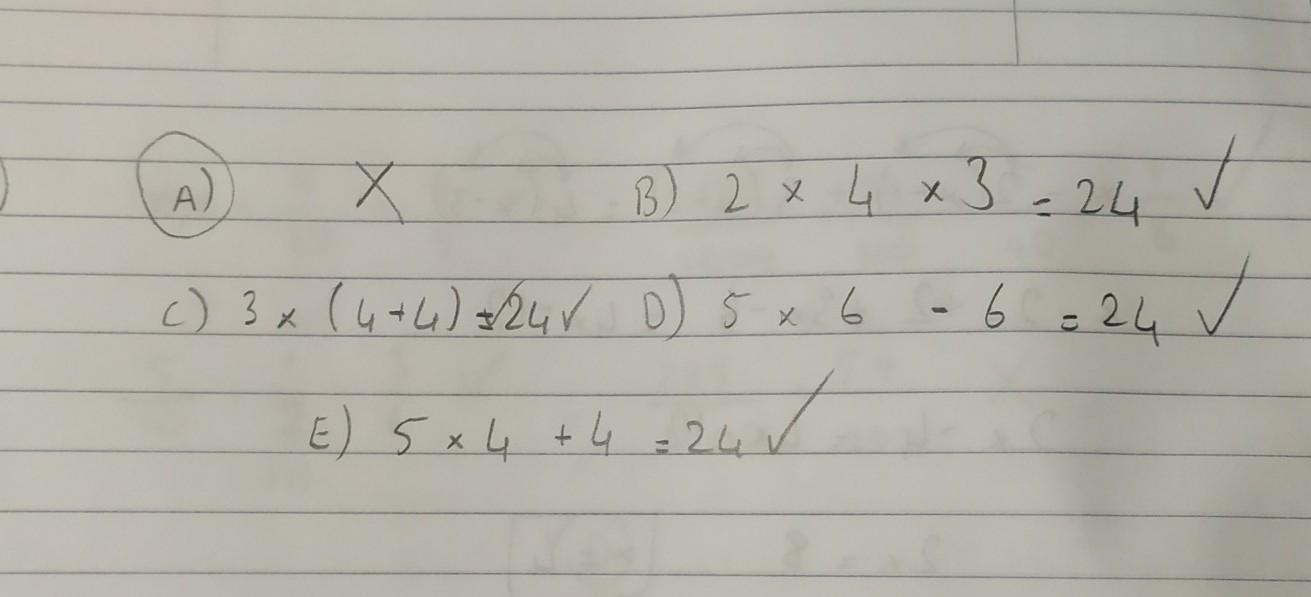 A) X B) 2 × 4 × 3 = 24 ✓
C) 3 × (4+4) = 24 ✓ D) 5 × 6 - 6 = 24 ✓
E) 5 × 4 + 4 = 24 ✓